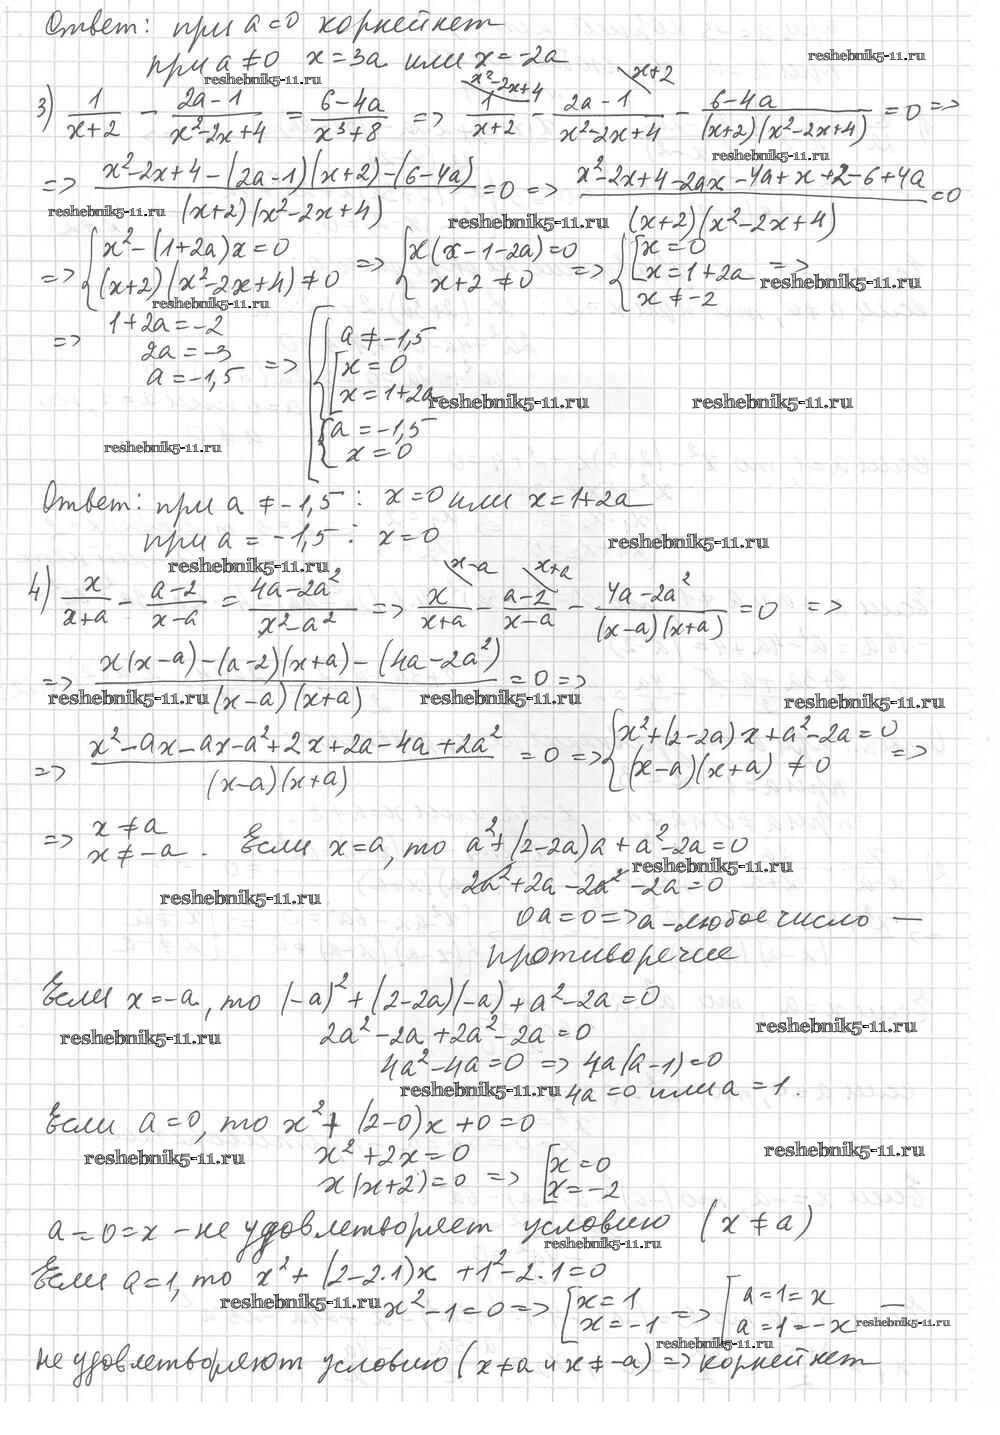 Ответ: при a=0 корней нет
при a ≠ 0 x = 3a или x = -2a
reshebnik5-11.ru
reshebnik5-11.ru
3) 1/(x+2) - (2a-1)/(x²-2x+4) = (6-4a)/(x³+8) => x²-2x+4\ 1/(x+2) - x+2\ (2a-1)/(x²-2x+4) - (6-4a)/((x+2)(x²-2x+4)) = 0 =>
reshebnik5-11.ru
=> (x²-2x+4-(2a-1)(x+2)-(6-4a))/((x+2)(x²-2x+4)) = 0 => (x²-2x+4-2ax-4a+x+2-6+4a)/((x+2)(x²-2x+4)) = 0
reshebnik5-11.ru reshebnik5-11.ru
=> { x²-(1+2a)x=0 (x+2)(x²-2x+4) ≠ 0 => { x(x-1-2a)=0 x+2 ≠ 0 => { [ x=0 x=1+2a x ≠ -2 =>
reshebnik5-11.ru reshebnik5-11.ru
=> 1+2a=-2
2a=-3
a=-1,5 => [ { a ≠ -1,5 [ x=0 x=1+2a { a=-1,5 x=0
reshebnik5-11.ru reshebnik5-11.ru
reshebnik5-11.ru
Ответ: при a ≠ -1,5: x=0 или x=1+2a
при a = -1,5: x=0
reshebnik5-11.ru
reshebnik5-11.ru
4) x/(x+a) - (a-2)/(x-a) = (4a-2a²)/(x²-a²) => x-a\ x/(x+a) - x+a\ (a-2)/(x-a) - (4a-2a²)/((x-a)(x+a)) = 0 =>
=> (x(x-a)-(a-2)(x+a)-(4a-2a²))/((x-a)(x+a)) = 0 =>
reshebnik5-11.ru reshebnik5-11.ru reshebnik5-11.ru
=> (x²-ax-ax-a²+2x+2a-4a+2a²)/((x-a)(x+a)) = 0 => { x²+(2-2a)x+a²-2a=0 (x-a)(x+a) ≠ 0 =>
=> x ≠ a
x ≠ -a . Если x=a, то a²+(2-2a)a+a²-2a=0
reshebnik5-11.ru
2a²+2a-2a²-2a=0
reshebnik5-11.ru
0a=0=>a-любое число —
противоречие
Если x=-a, то (-a)²+(2-2a)(-a)+a²-2a=0
reshebnik5-11.ru 2a²-2a+2a²-2a=0 reshebnik5-11.ru
4a²-4a=0 => 4a(a-1)=0
reshebnik5-11.ru 4a=0 или a=1.
Если a=0, то x²+(2-0)x+0=0
reshebnik5-11.ru x²+2x=0 reshebnik5-11.ru
x(x+2)=0 => [ x=0 x=-2
a=0=x - не удовлетворяет условию (x ≠ a)
reshebnik5-11.ru
Если a=1, то x²+(2-2·1)x+1²-2·1=0
reshebnik5-11.ru x²-1=0 => [ x=1 x=-1 => [ a=1=x a=1=-x —
reshebnik5-11.ru
reshebnik5-11.ru
не удовлетворяют условию (x ≠ a и x ≠ -a) => корней нет